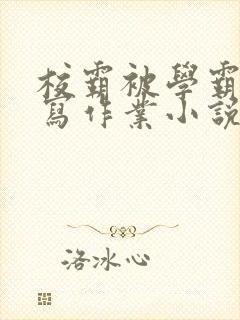 校霸被學霸
寫作業小說
洛冰心